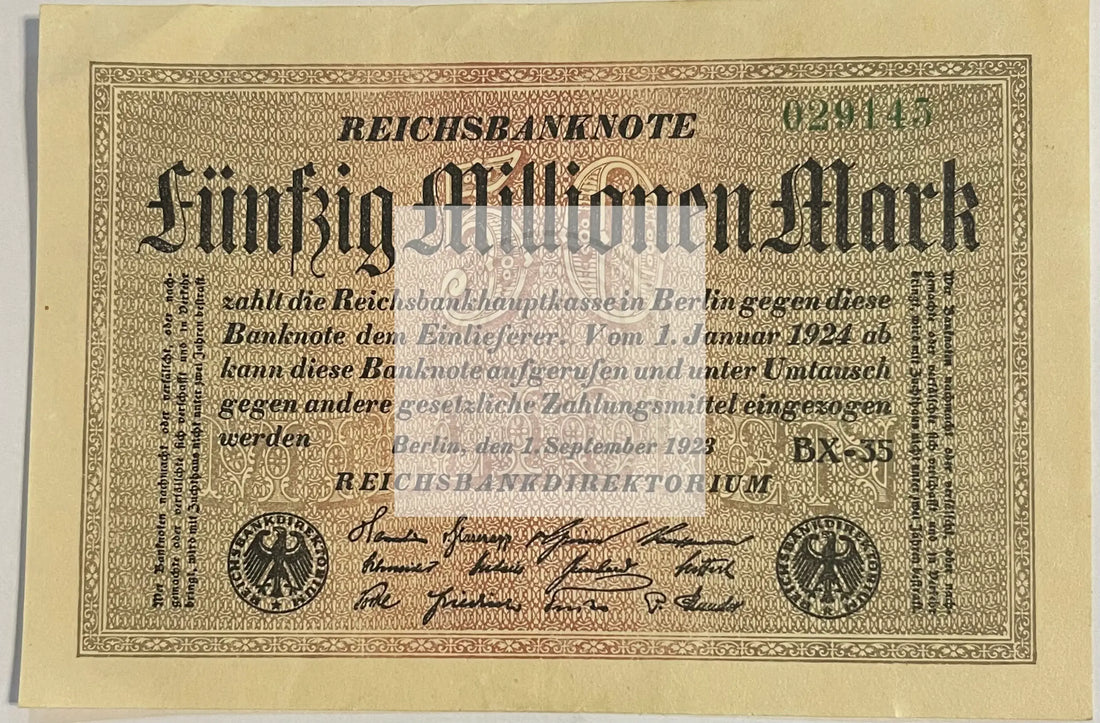 REICHSBANKNOTE
029145
50
Fünfzig Millionen Mark
zahlt die Reichsbankhauptkasse in Berlin gegen diese
Banknote dem Einlieferer. Vom 1. Januar 1924 ab
kann diese Banknote aufgerufen und unter Umtausch
gegen andere gesetzliche Zahlungsmittel eingezogen
werden
Berlin, den 1. September 1923
BX-35
REICHSBANKDIREKTORIUM
MILLIONEN
Wer Banknoten nachmacht oder verfälscht, oder nach-
gemachte oder verfälschte sich verschafft und in Verkehr
bringt, wird mit Zuchthaus nicht unter zwei Jahren bestraft
Wer Banknoten nachmacht oder verfälscht, oder nach-
gemachte oder verfälschte sich verschafft und in Verkehr
bringt, wird mit Zuchthaus nicht unter zwei Jahren bestraft
REICHSBANKDIREKTORIUM
REICHSBANKDIREKTORIUM